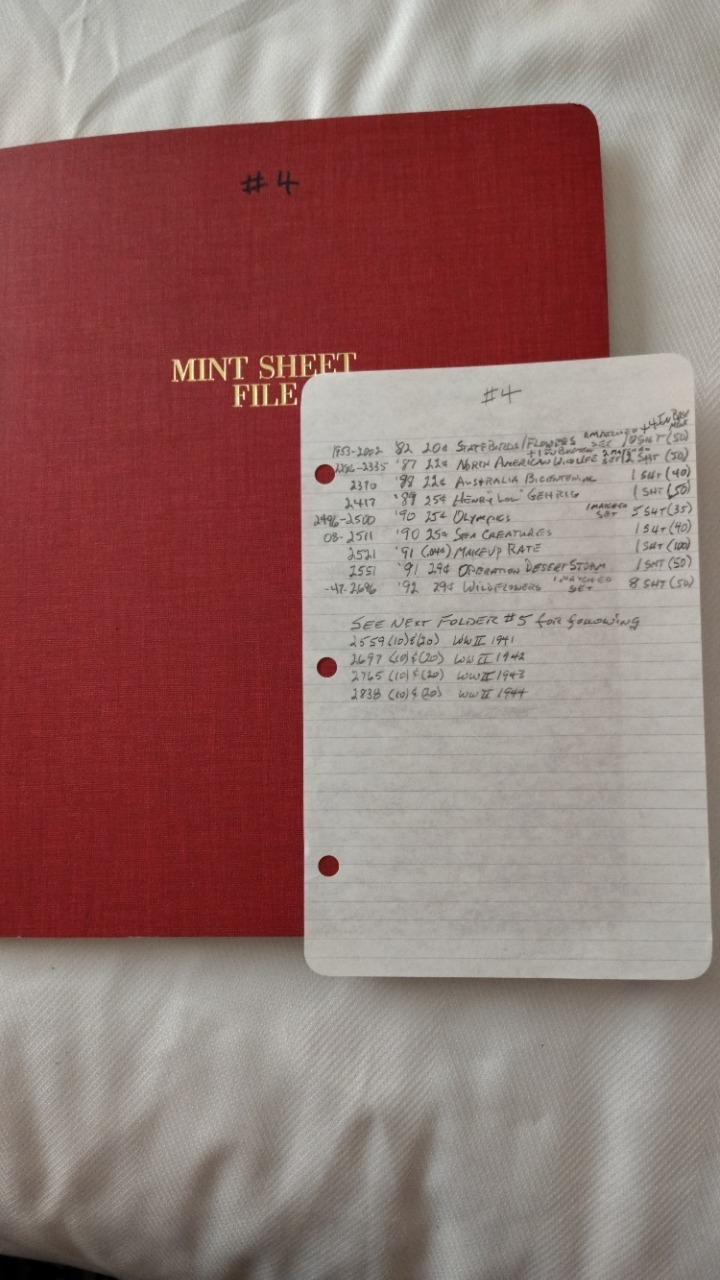 #4
MINT SHEET
FILE
#4
+4 IN BOX
1953-2002 '82 20¢ STATE BIRDS/FLOWERS MATCHED SET SHT (50)
+1 IN BINDER
-2335 '87 22¢ NORTH AMERICAN WILDLIFE SET SHT (50)
2370 '88 22¢ AUSTRALIA BICENTENNIAL 1 SHT (40)
2417 '89 25¢ HENRY "LOU" GEHRIG 1 SHT (50)
2496-2500 '90 25¢ OLYMPICS 1 MATCHED SET 5 SHT (35)
08-2511 '90 25¢ SEA CREATURES 1 SHT (40)
2521 '91 (.04¢) MAKEUP RATE 1 SHT (100)
2551 '91 29¢ OPERATION DESERT STORM 1 SHT (50)
-47-2696 '92 29¢ WILDFLOWERS 1 MATCHED SET 8 SHT (50)
SEE NEXT FOLDER #5 for following
2559 (10) & (20) WW II 1941
2697 (10) & (20) WW II 1942
2765 (10) & (20) WW II 1943
2838 (10) & (20) WW II 1944